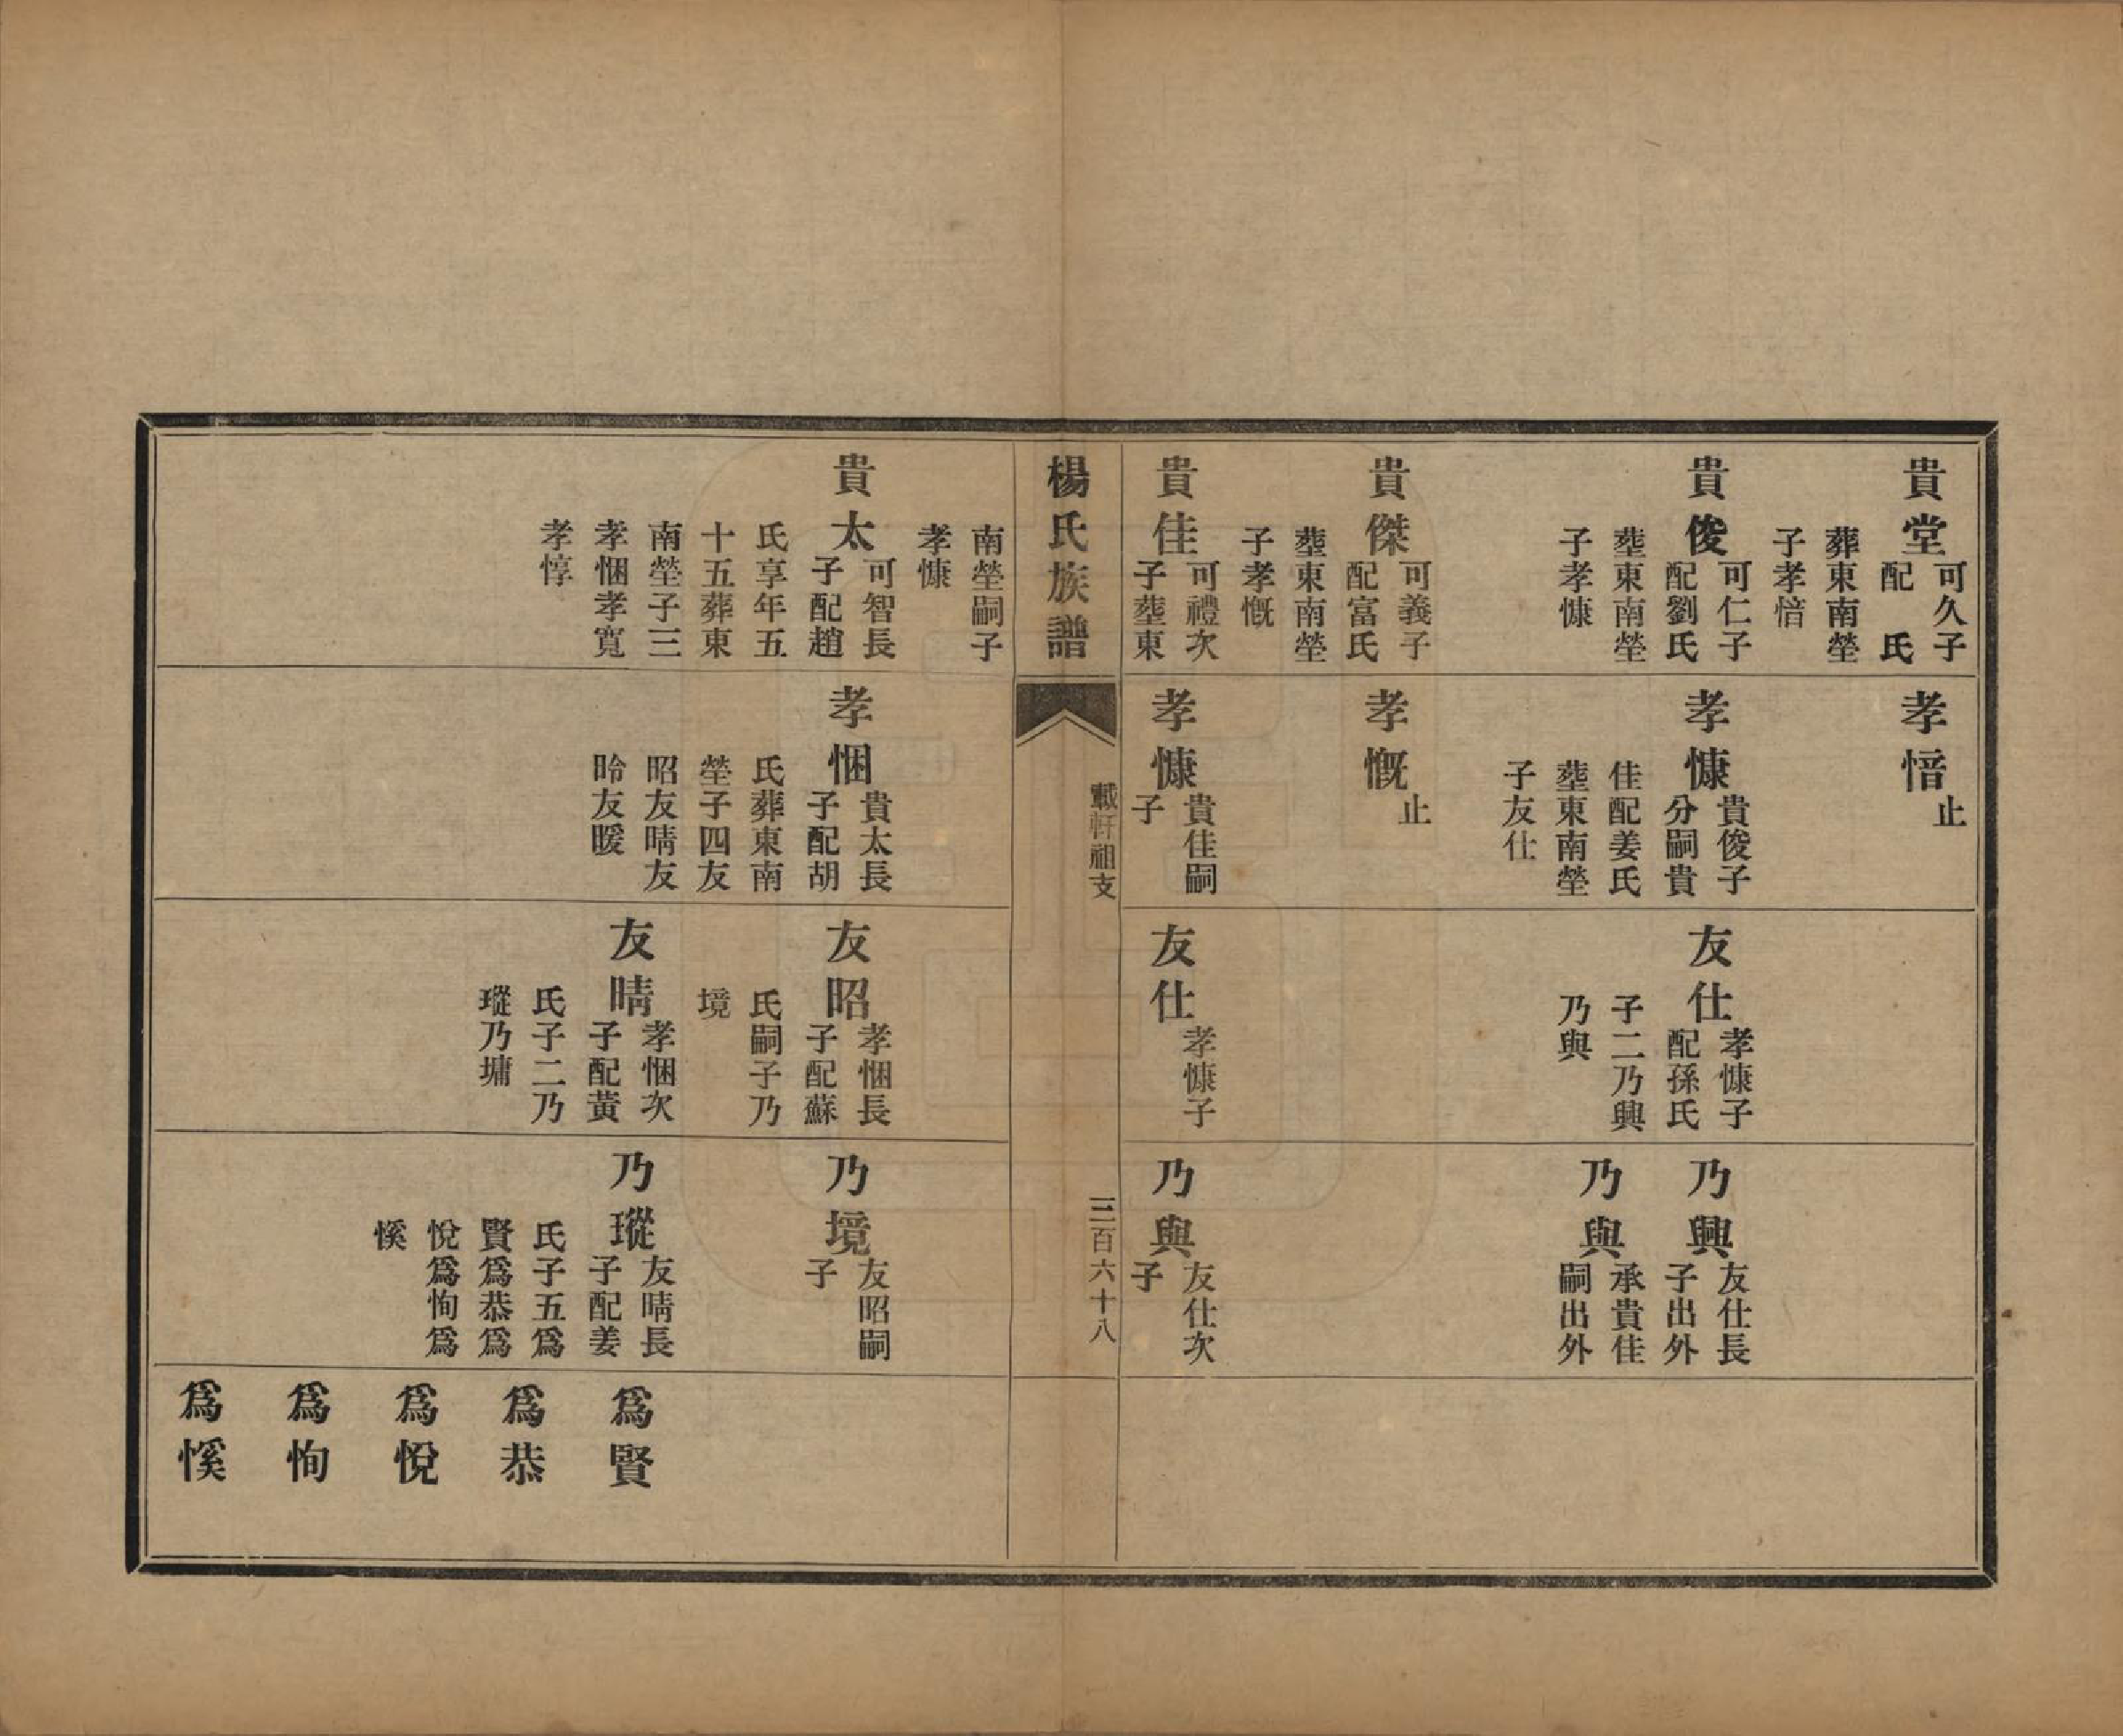 貴堂
可久子
配　氏
葬東南塋
子孝愔
貴俊
可仁子
配劉氏
塟東南塋
子孝慷
貴傑
可義子
配富氏
塟東南塋
子孝慨
貴佳
可禮次
子塟東
孝愔
止
孝慷
貴俊子
分嗣貴
佳配姜氏
塟東南塋
子友仕
孝慨
止
孝慷
貴佳嗣
子
友仕
孝慷子
配孫氏
子二乃興
乃與
友仕
孝慷子
乃興
友仕長
子出外
乃與
承貴佳
嗣出外
乃與
友仕次
子
楊氏族譜
載軒祖支
三百六十八
南塋嗣子
孝慷
貴太
可智長
子配趙
氏享年五
十五葬東
南塋子三
孝悃孝寬
孝惇
孝悃
貴太長
子配胡
氏葬東南
塋子四友
昭友晴友
昤友暖
友昭
孝悃長
子配蘇
氏嗣子乃
境
友晴
孝悃次
子配黃
氏子二乃
瑽乃墉
乃境
友昭嗣
子
乃瑽
友晴長
子配姜
氏子五爲
賢爲恭爲
悅爲恂爲
慀
爲賢
爲恭
爲悅
爲恂
爲慀